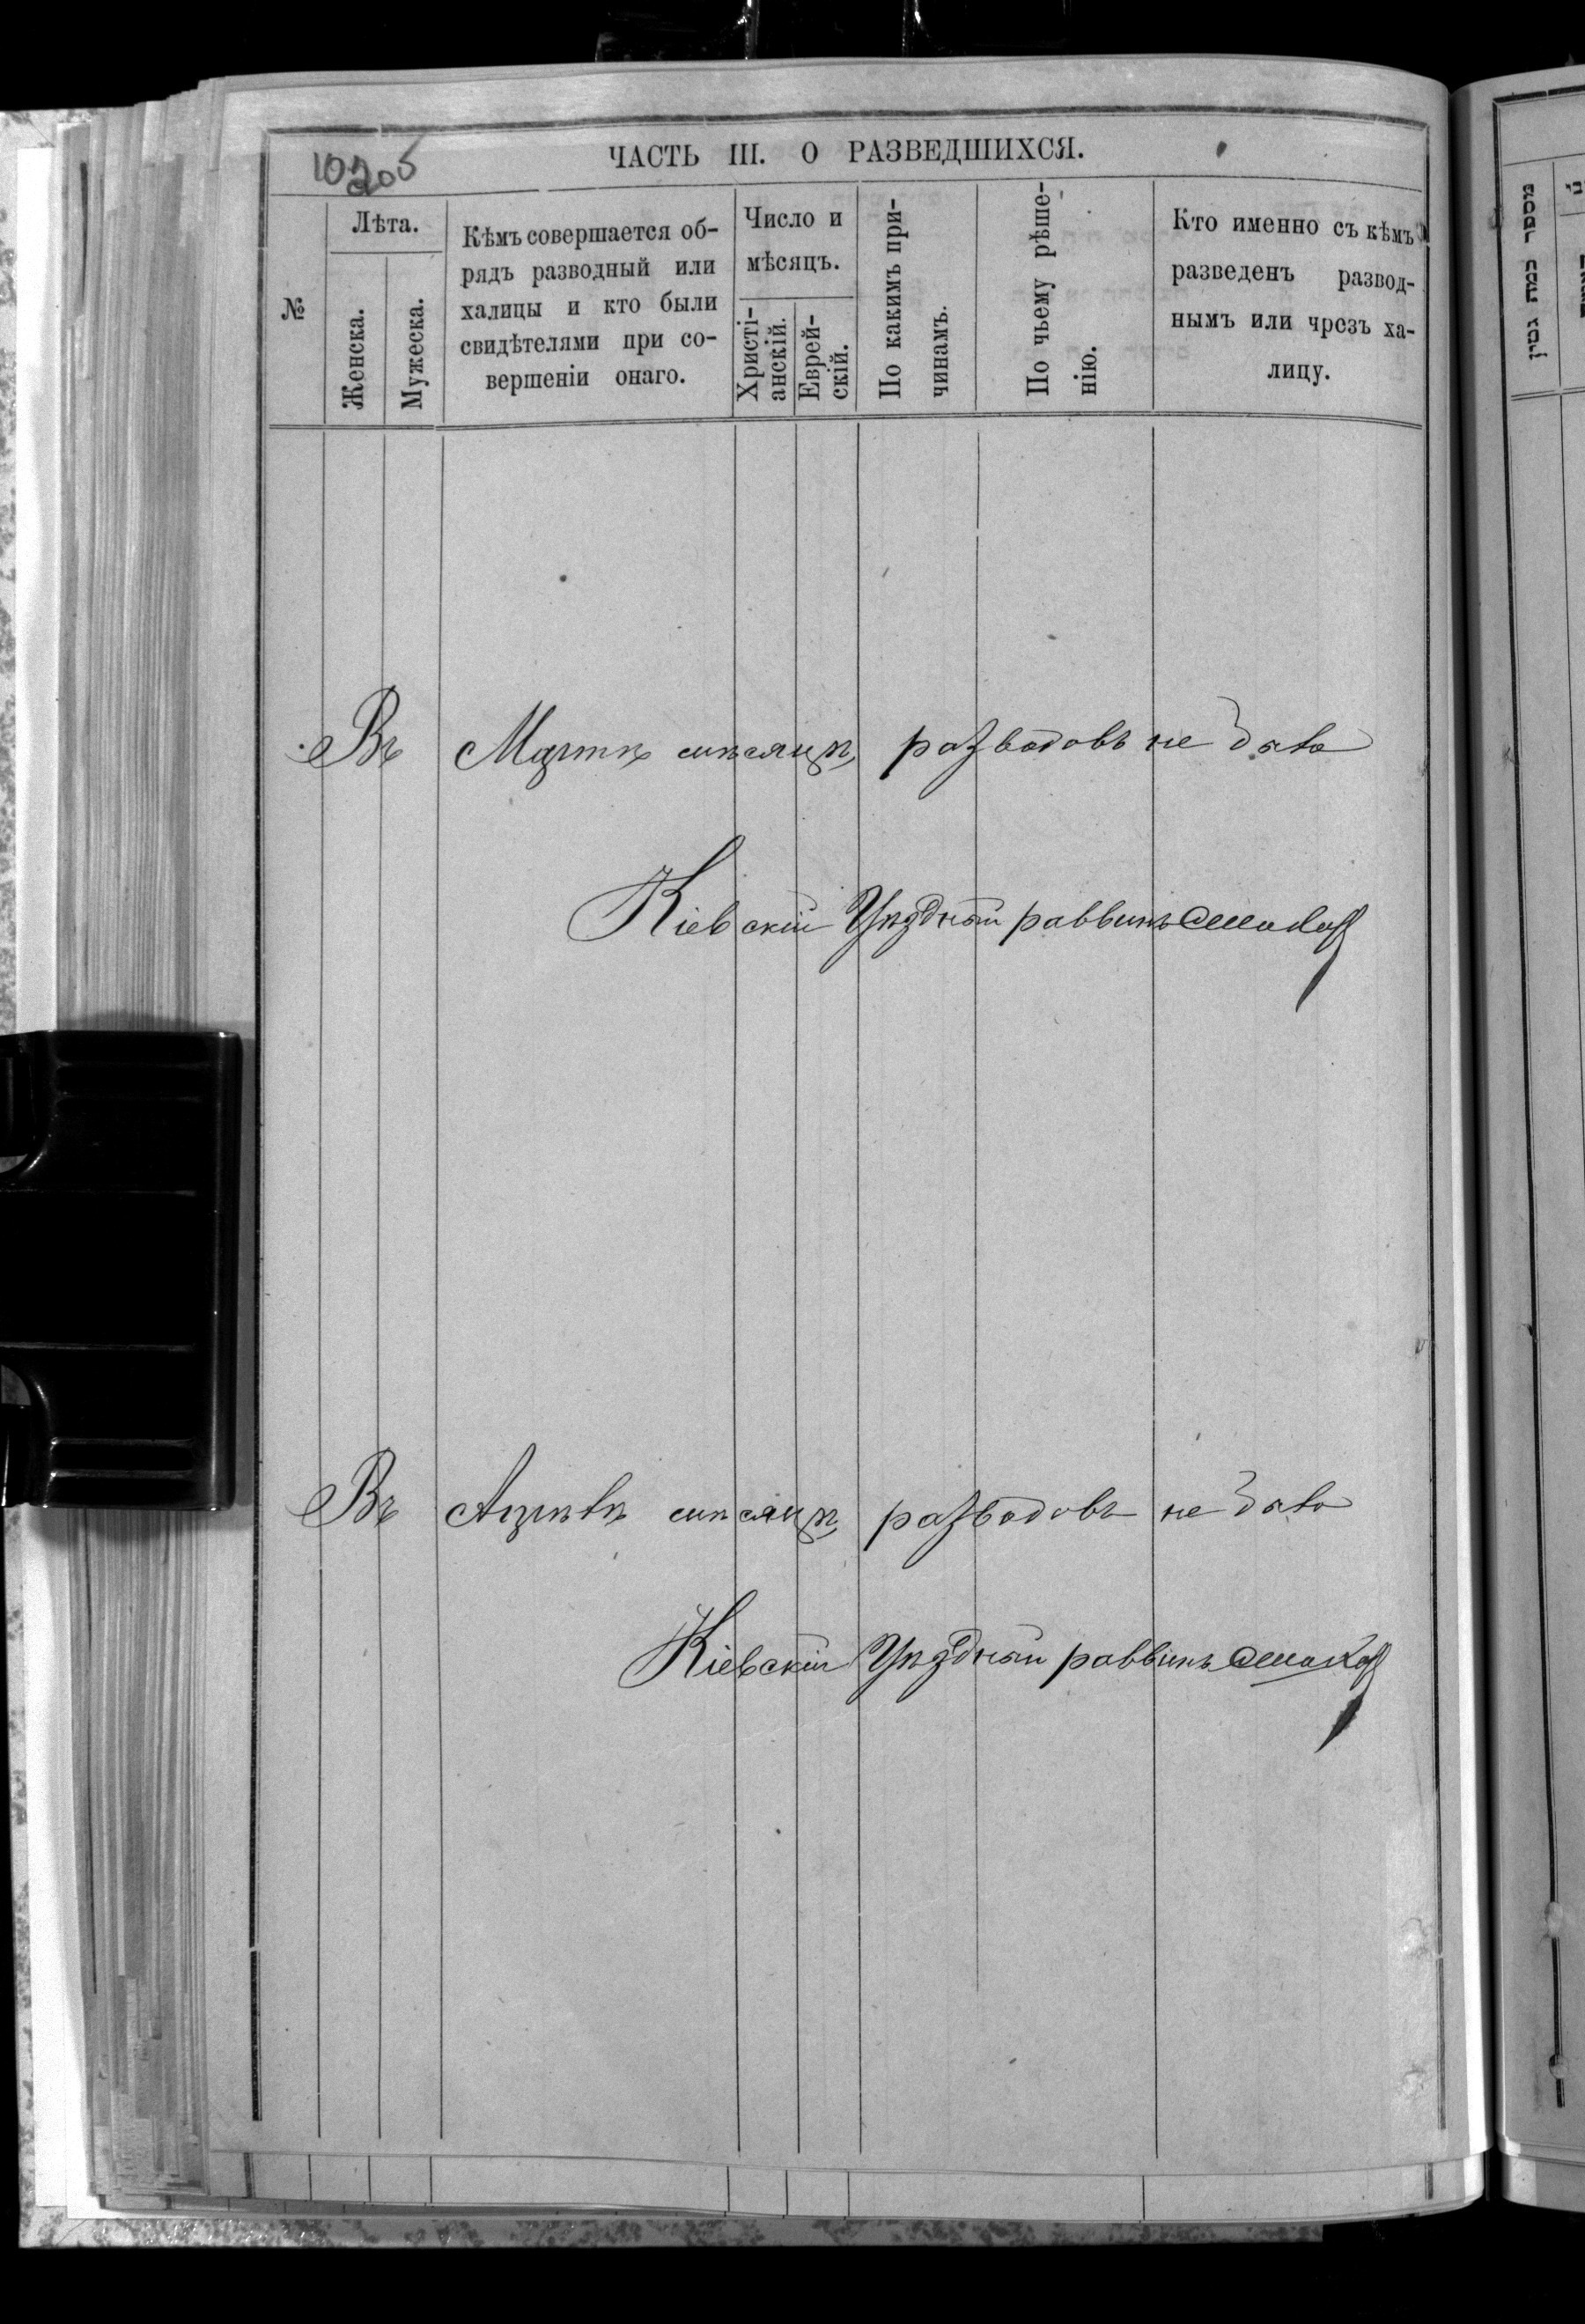 10205
ЧАСТЬ III. О РАЗВЕДШИХСЯ.
№
Лѣта.
Женска.
Мужеска.
Кѣмъ совершается об-
рядъ разводный или
халицы и кто были
свидѣтелями при со-
вершеніи онаго.
Число и
мѣсяцъ.
Христі-
анскій.
Еврей-
скій.
По какимъ при-
чинамъ.
По чьему рѣше-
нію.
Кто именно съ кѣмъ
разведенъ развод-
нымъ или чрезъ ха-
лицу.
מספר כמה גטין
Въ Мартѣ мѣсяцѣ разводовъ не было
Кіевскій Уѣздный раввинъ
Въ Апрѣлѣ мѣсяцѣ разводовъ не было
Кіевскій Уѣздный раввинъ